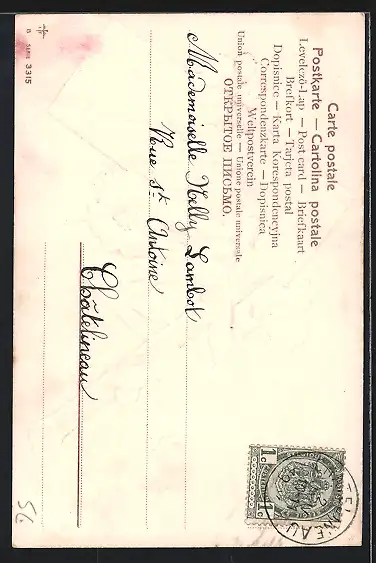 Carte postale
Postkarte — Cartolina postale
Levelező-Lap — Post card — Briefkaart
Brefkort — Tarjeta postal
Dopisnice — Karta Korespondencyjna
Correspondenzkarte — Dopisnica
Weltpostverein
Union postale universelle — Unione postale universale
ОТКРЫТОЕ ПИСЬМО.
Mademoiselle Nelly Lambot
Rue St Antoine
Châtelineau
B SERIE 3315
1c 1c
56